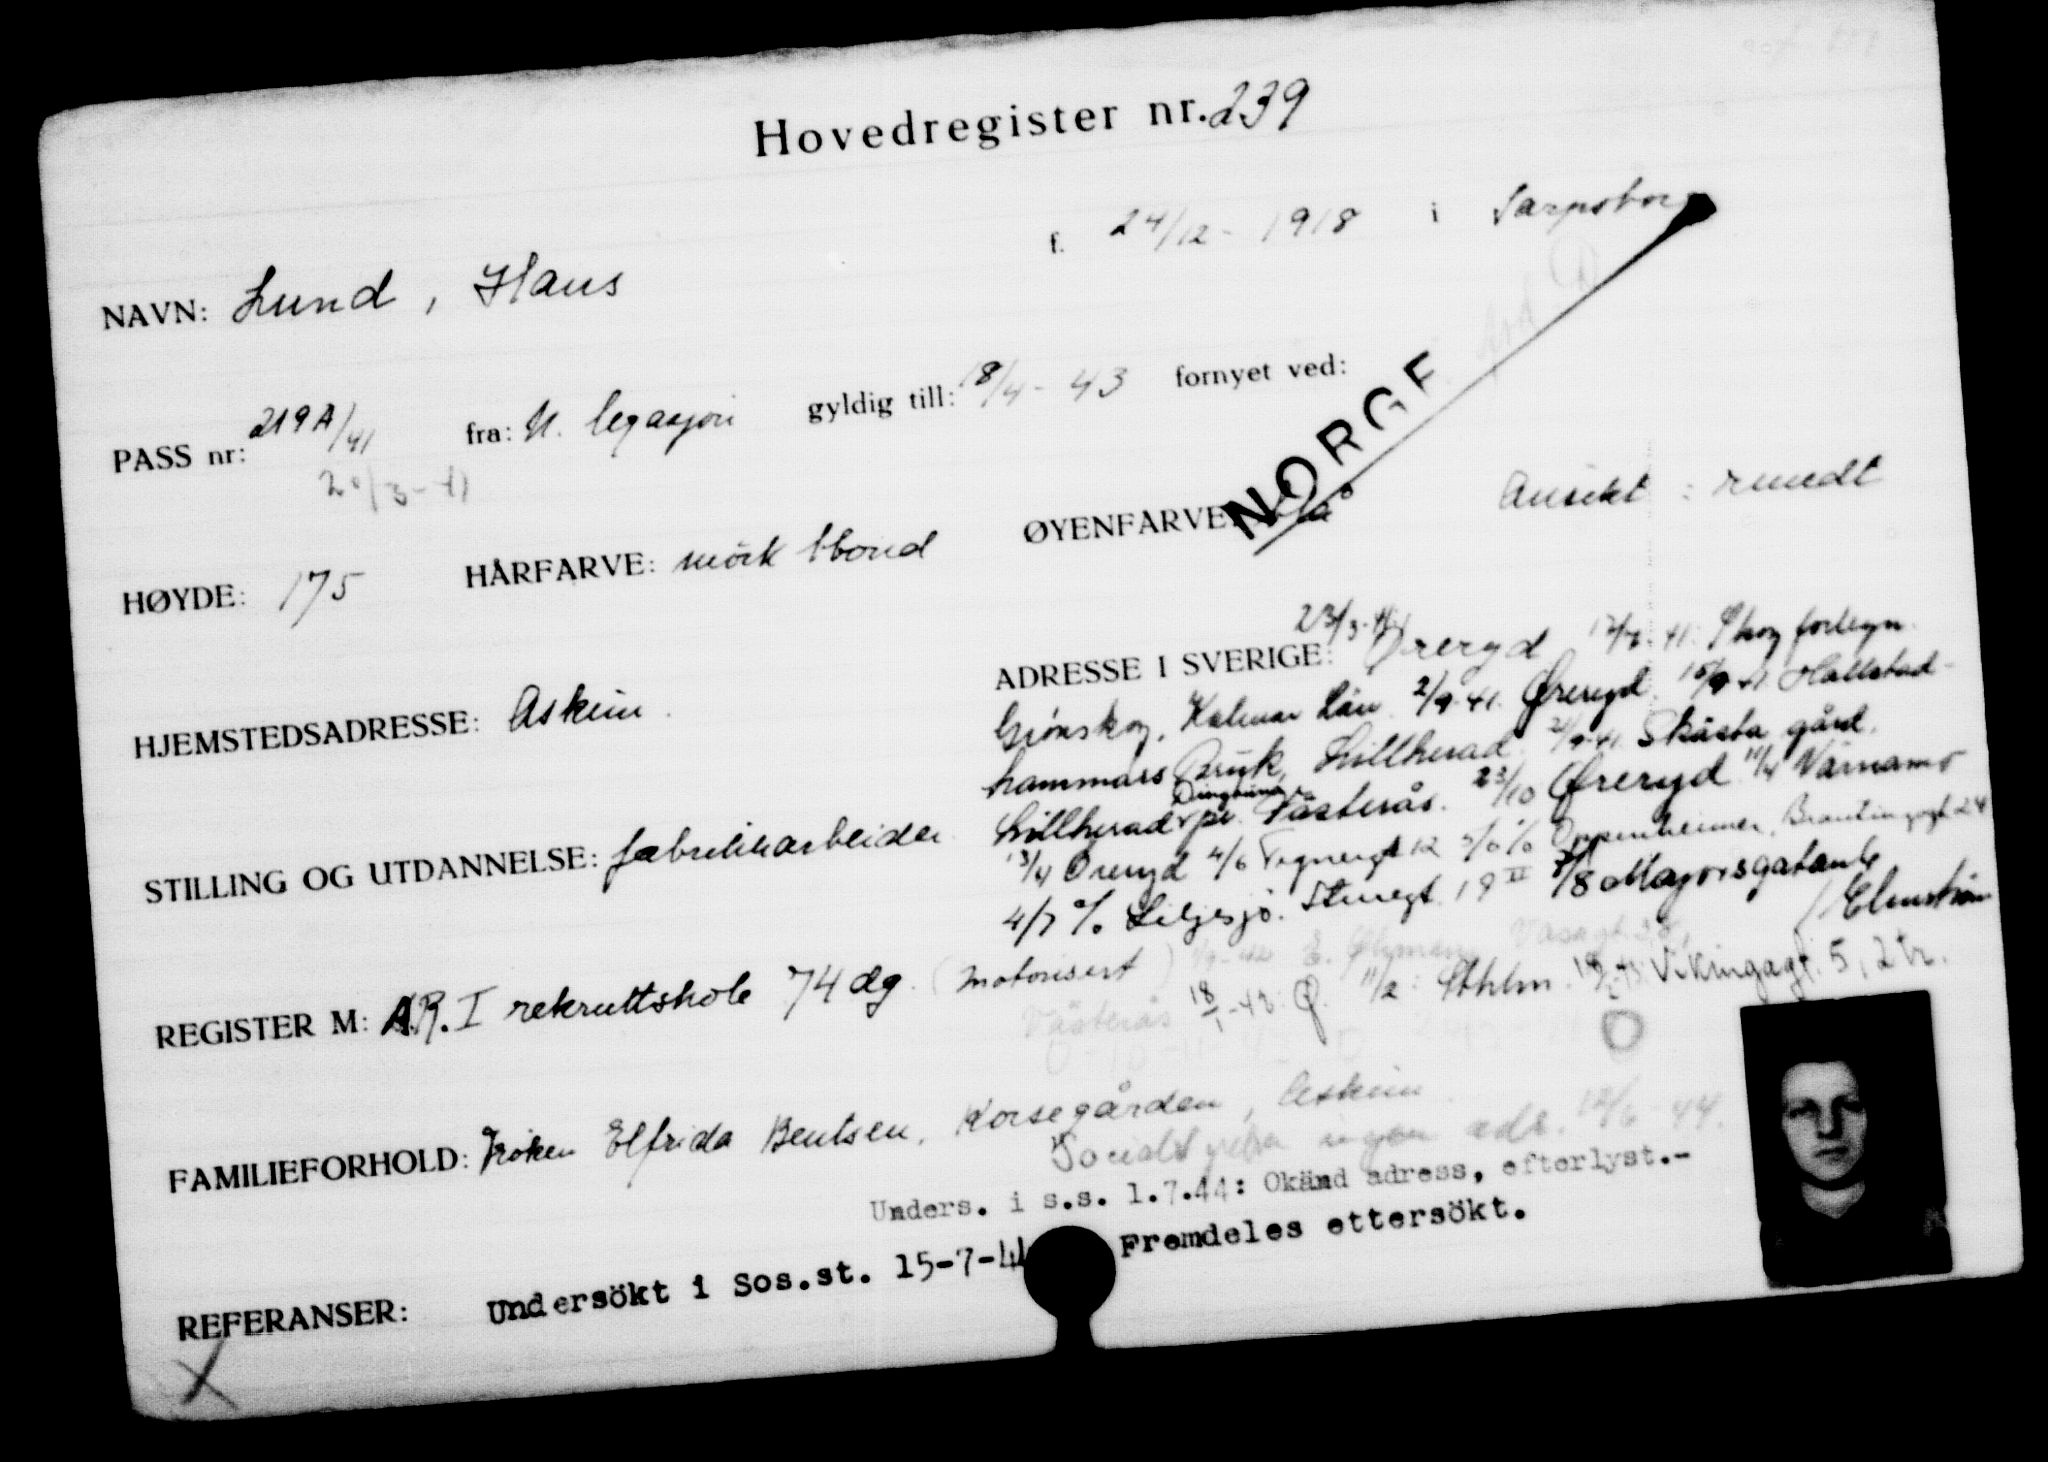 Hovedregister nr. 239
NAVN: Lund, Hans f. 24/12-1918 i Sarpsborg
PASS nr: 219A/41 fra: N. legasjon gyldig till: 18/4-43 fornyet ved:
20/3-41
NORGE
HØYDE: 175 HÅRFARVE: mörk blond ØYENFARVE: blå Ansikt: rundt
HJEMSTEDSADRESSE: Askim
ADRESSE I SVERIGE: 23/3-41 Øreryd 41. Skog forlegn.
Grönskog, Kalmar län 2/9-41. Øreryd. 41. Hallstad-
hammars Bruk, Lillherad. 41. Skästa gård,
Lillherad pr. Västerås. 23/10 Øreryd 11/4 Värnamo
13/4 Öreryd 4/6 Tegnergt 12 c/o Oppenheimer, Brantingsgt 24
4/7 c/o Liljesjö. Sturegt. 19 II 7/8 Majorsgatan
Elmström
STILLING OG UTDANNELSE: fabrikkarbeider
REGISTER M: A.R. I rekruttskole 74 dg. (motorisert)
E. Öhman, Vasagt.
Västerås 18/1-43: Ø. 11/2: Sthlm. Vikingagt. 5, 2 tr.
FAMILIEFORHOLD: Fröken Elfrida Bentsen, Korsegården, Askim
ingen adr. 44.
Unders. i s.s. 1.7.44: Okänd adress, efterlyst.-
REFERANSER: Undersökt i Sos.st. 15-7-44 Fremdeles ettersökt.
X